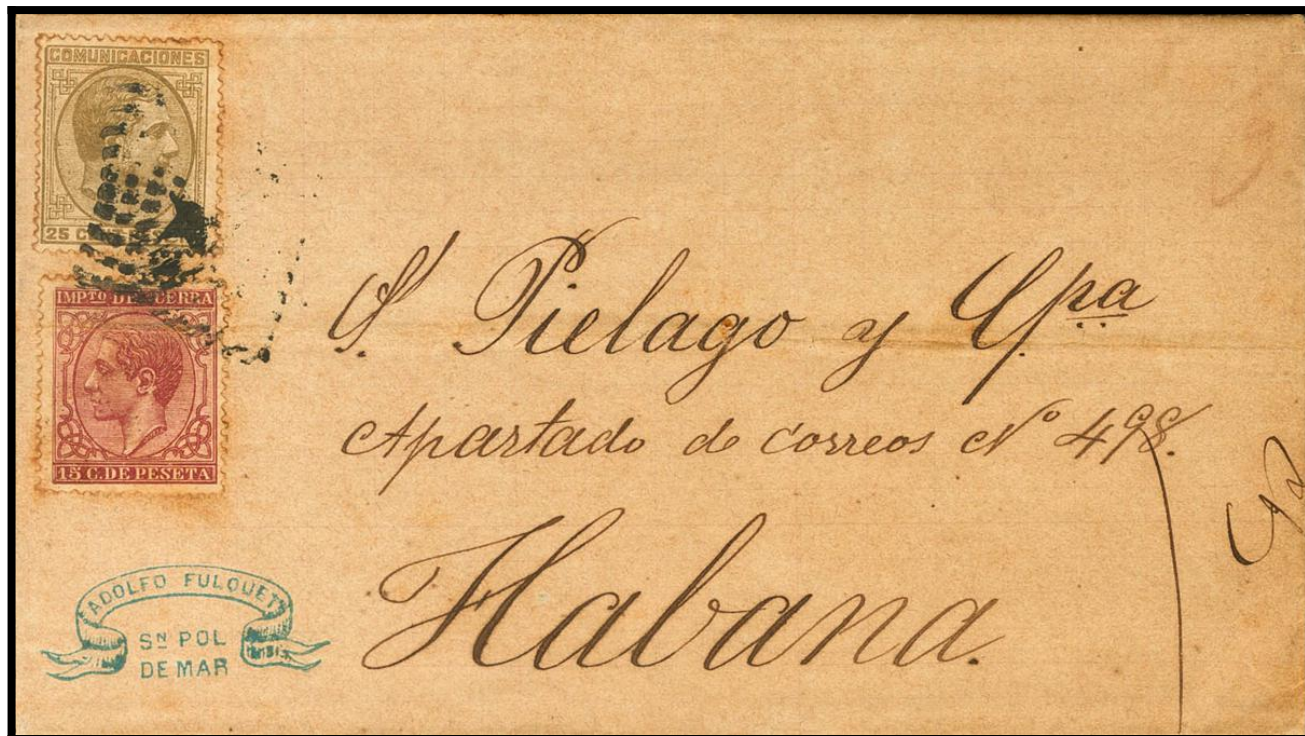 COMUNICACIONES
IMPTO DE GUERRA
15 C. DE PESETA
S. Pielago y Cpa
Apartado de correos No 498.
Habana.
ADOLFO FULQUET
SN POL
DE MAR